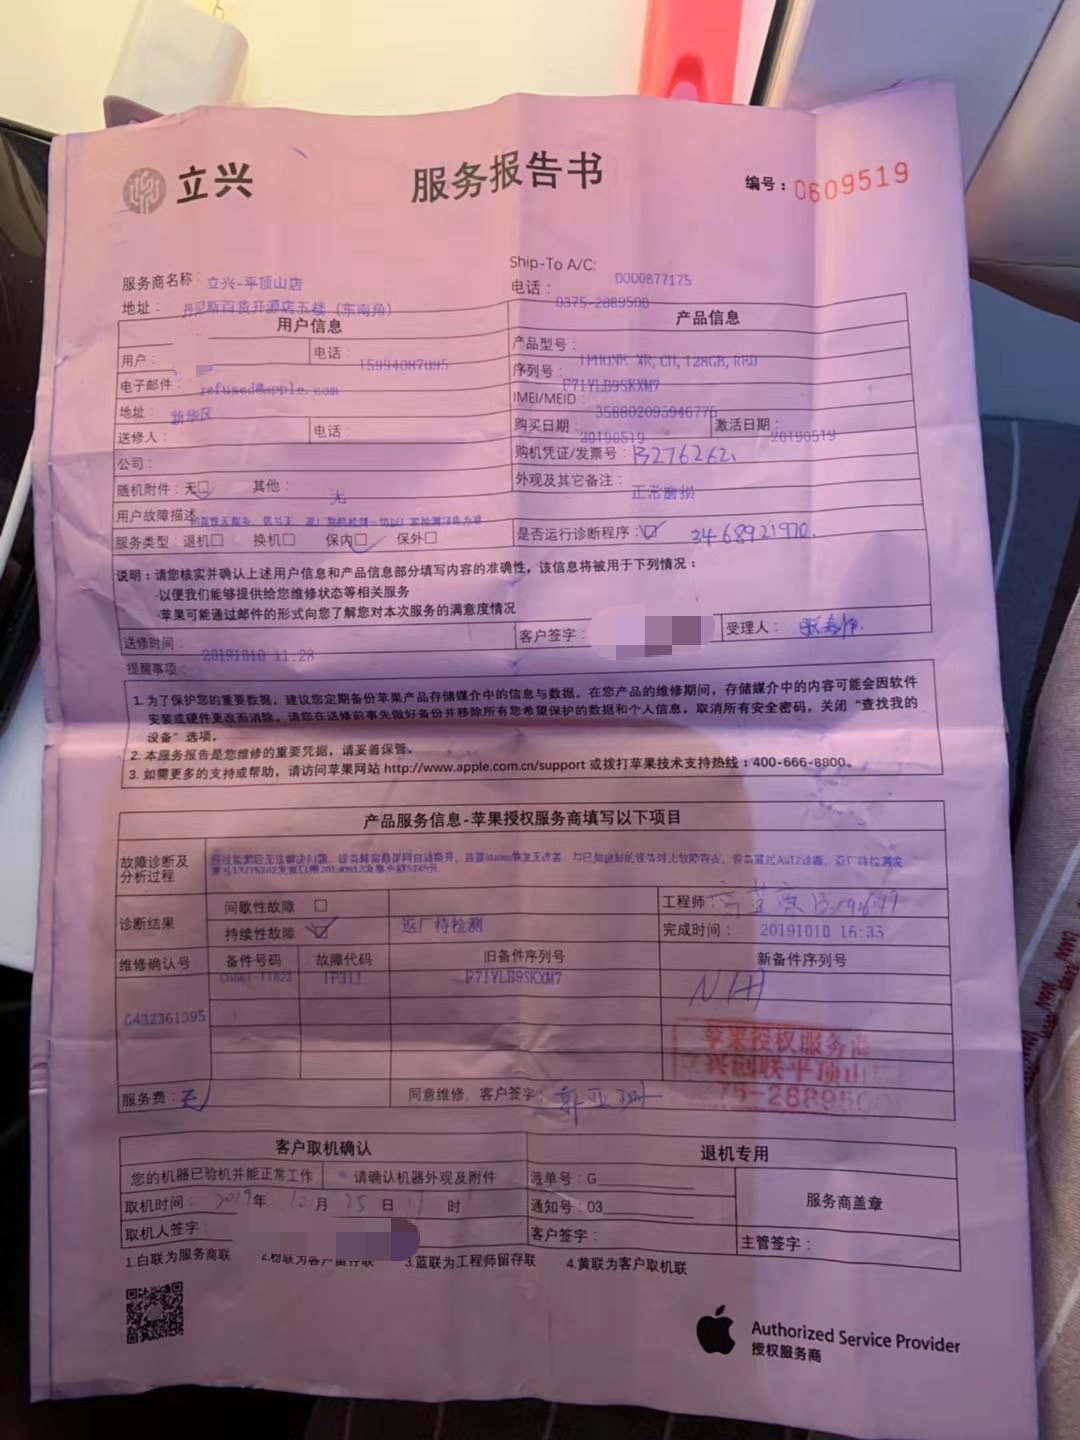 立兴
服务报告书
编号：0609519
服务商名称：立兴-平顶山店
Ship-To A/C: 0000877175
地址：丹尼斯百货开源店五楼（东南角）
电话：0375-2889500
用户信息
产品信息
用户：
电话：15994087095
产品型号：IPHONE XR, CH, 128GB, RED
电子邮件：refused@apple.com
序列号：F71YLB9SKXM7
地址：新华区
IMEI/MEID：358802095946776
送修人：
电话：
购买日期：20190519
激活日期：20190519
公司：
购机凭证/发票号：
随机附件：无□ 其他：无
外观及其它备注：正常磨损
用户故障描述：
服务类型：退机□ 换机□ 保内□ 保外□
是否运行诊断程序：□ 3468921970.
说明：请您核实并确认上述用户信息和产品信息部分填写内容的准确性，该信息将被用于下列情况：
·以便我们能够提供给您维修状态等相关服务
·苹果可能通过邮件的形式向您了解您对本次服务的满意度情况
送修时间：20191010 11:28
客户签字：
受理人：
提醒事项：
1. 为了保护您的重要数据，建议您定期备份苹果产品存储媒介中的信息与数据。在您产品的维修期间，存储媒介中的内容可能会因软件
安装或硬件更改而消除。请您在送修前事先做好备份并移除所有您希望保护的数据和个人信息，取消所有安全密码，关闭“查找我的
设备”选项。
2. 本服务报告是您维修的重要凭据，请妥善保管。
3. 如需更多的支持或帮助，请访问苹果网站 http://www.apple.com.cn/support 或拨打苹果技术支持热线：400-666-8800。
产品服务信息-苹果授权服务商填写以下项目
故障诊断及
分析过程
诊断结果
间歇性故障 □
持续性故障 □
返厂待检测
工程师：
完成时间：20191010 16:35
维修确认号
备件号码
故障代码
旧备件序列号
新备件序列号
IP311
F71YLB9SKXM7
N/A
G432361395
苹果授权服务商
服务费：无
同意维修，客户签字：郭亚珊
客户取机确认
退机专用
您的机器已验机并能正常工作
请确认机器外观及附件
派单号：G
服务商盖章
取机时间：2019年10月25日 时
通知号：03
取机人签字：
客户签字：
主管签字：
1.白联为服务商联 2.粉联为客户留存联 3.蓝联为工程师留存联 4.黄联为客户取机联
Authorized Service Provider
授权服务商